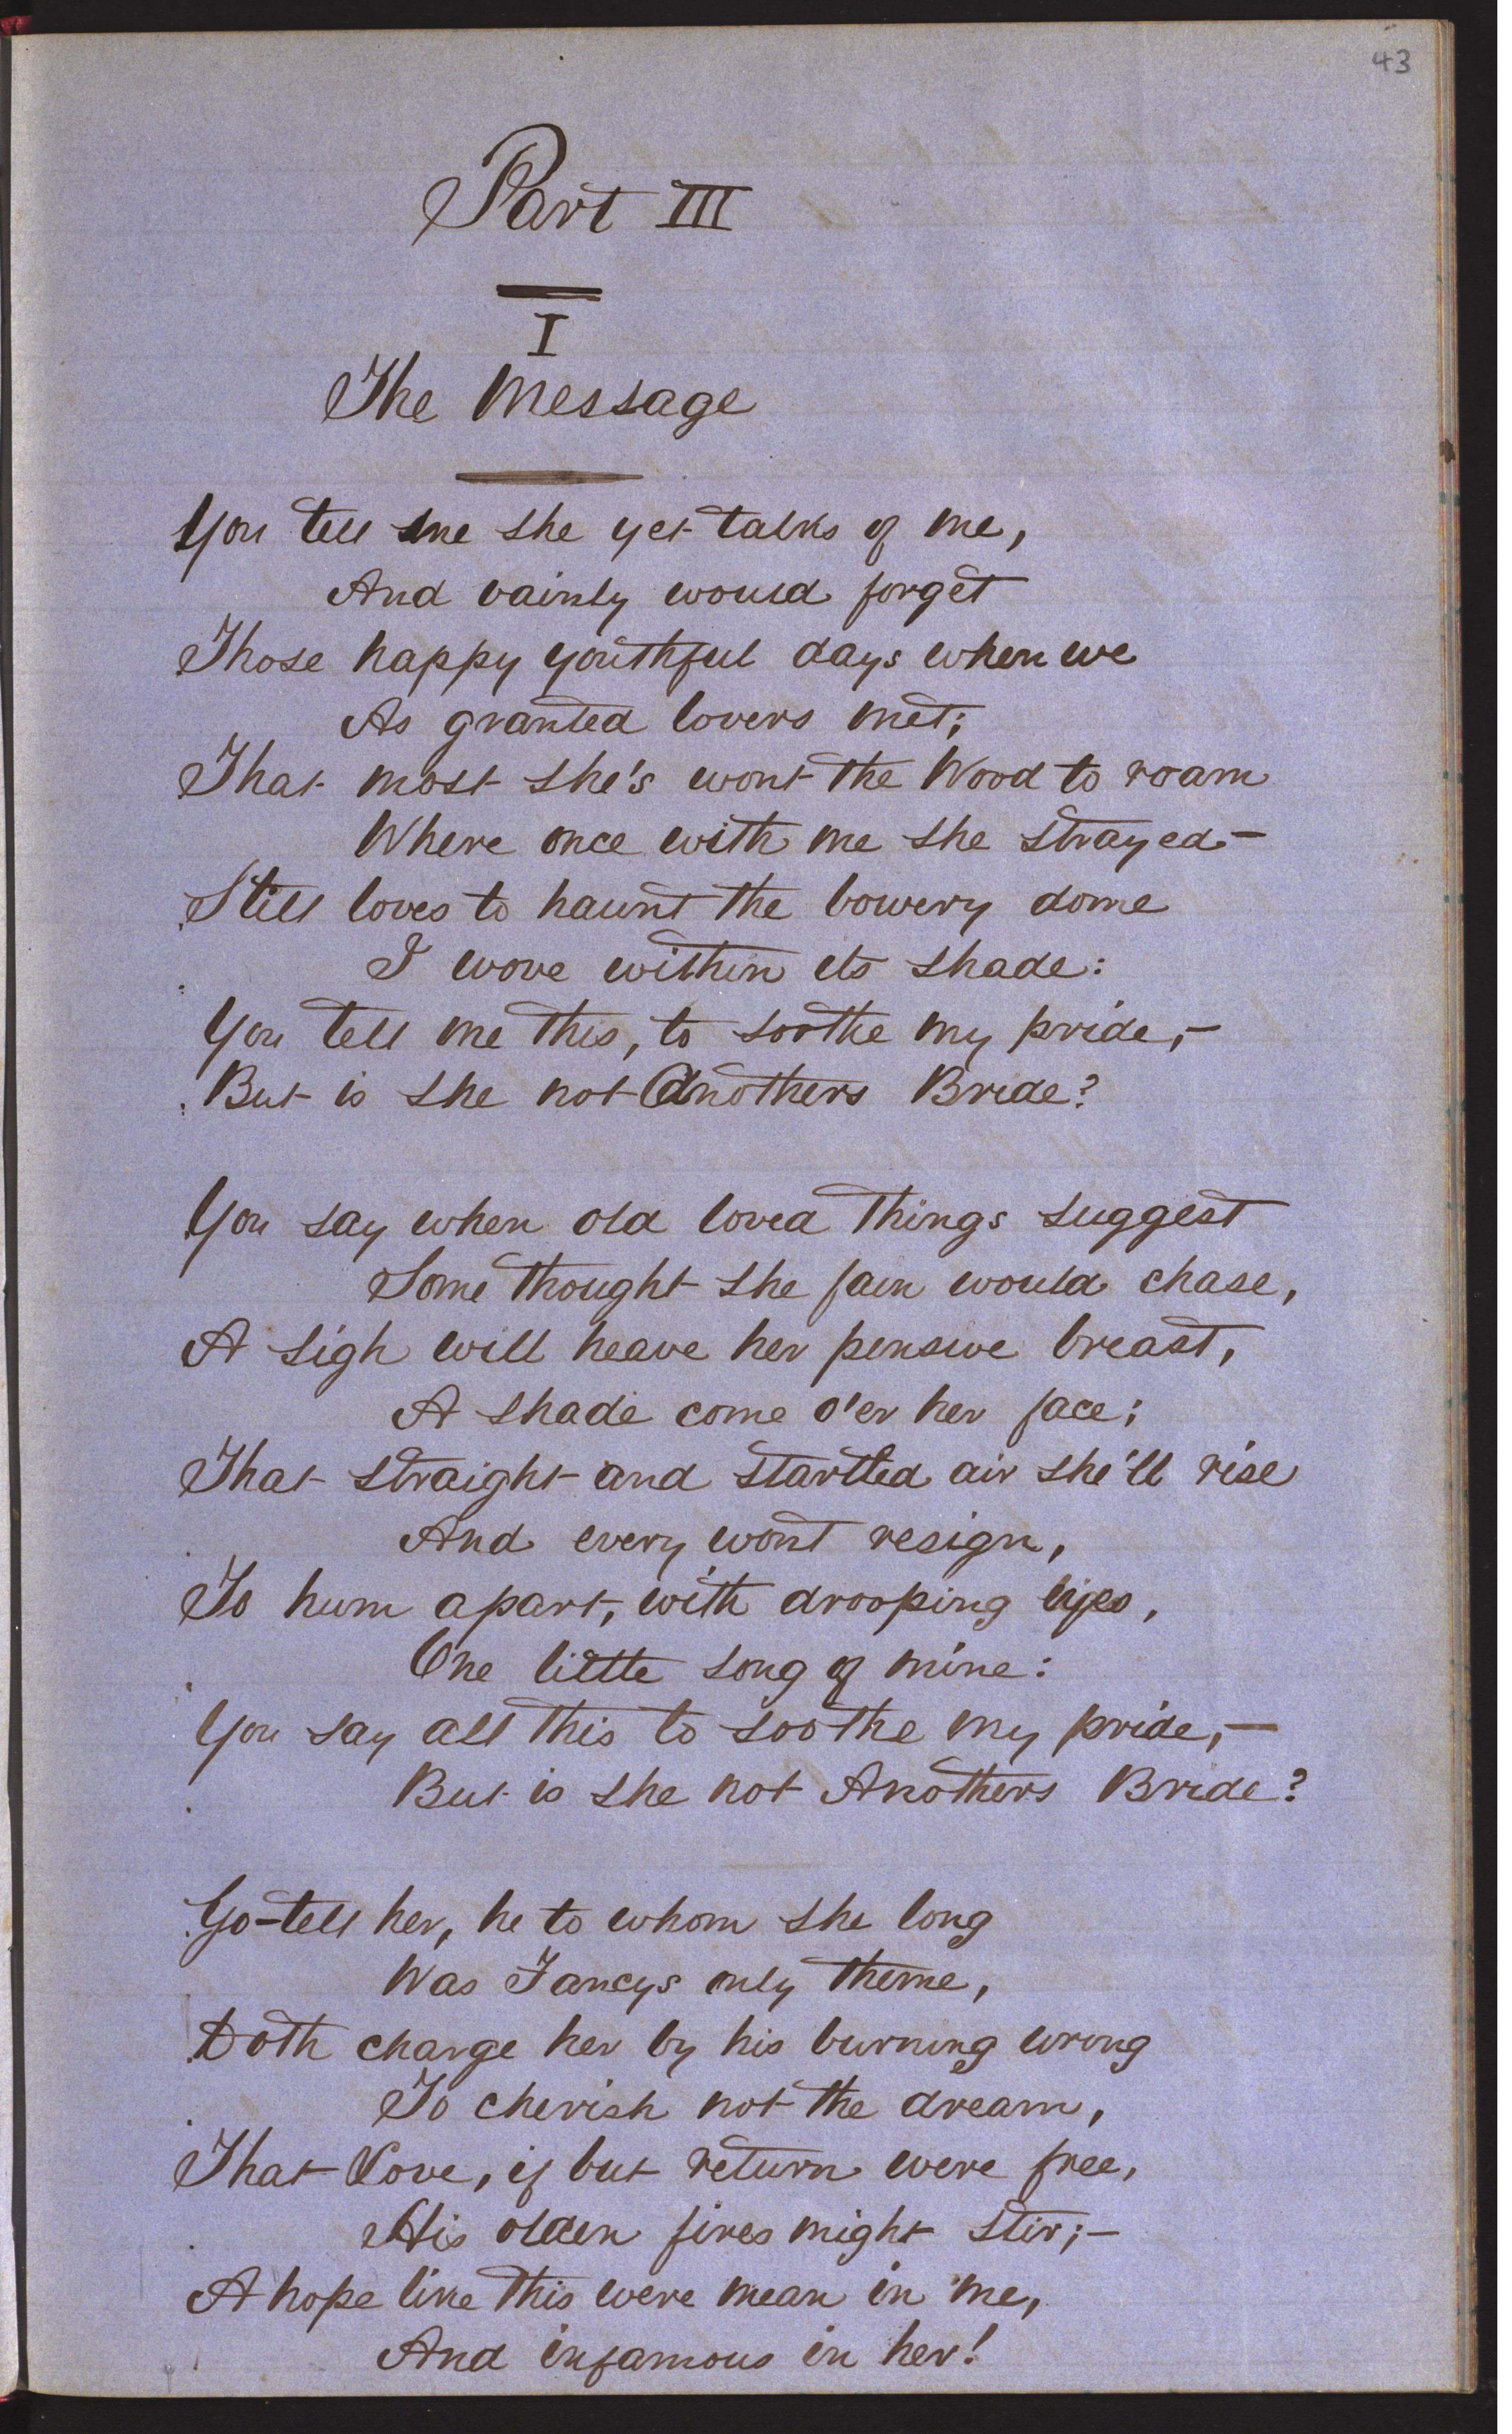 43
Part III
I
The Message
You tell me she yet talks of me,
And vainly would forget
Those happy youthful days when we
As granted lovers met;
That most she's wont the Wood to roam
Where once with me she strayed—
Still loves to haunt the bowery dome
I wove within its shade:
You tell me this, to soothe my pride,—
But is she not Anothers Bride?
You say when old loved things suggest
Some thought she fain would chase,
A sigh will heave her pensive breast,
A shade come o'er her face;
That straight and startled air she'll rise
And every wont resign,
To hum apart, with drooping eyes,
One little song of mine:
You say all this to soothe my pride,—
But is she not Anothers Bride?
Go-tell her, he to whom she long
Was Fancys only theme,
Doth charge her by his burning wrong
To cherish not the dream,
That Love, if but return were free,
His olden fires might stir;—
A hope like this were mean in me,
And infamous in her!